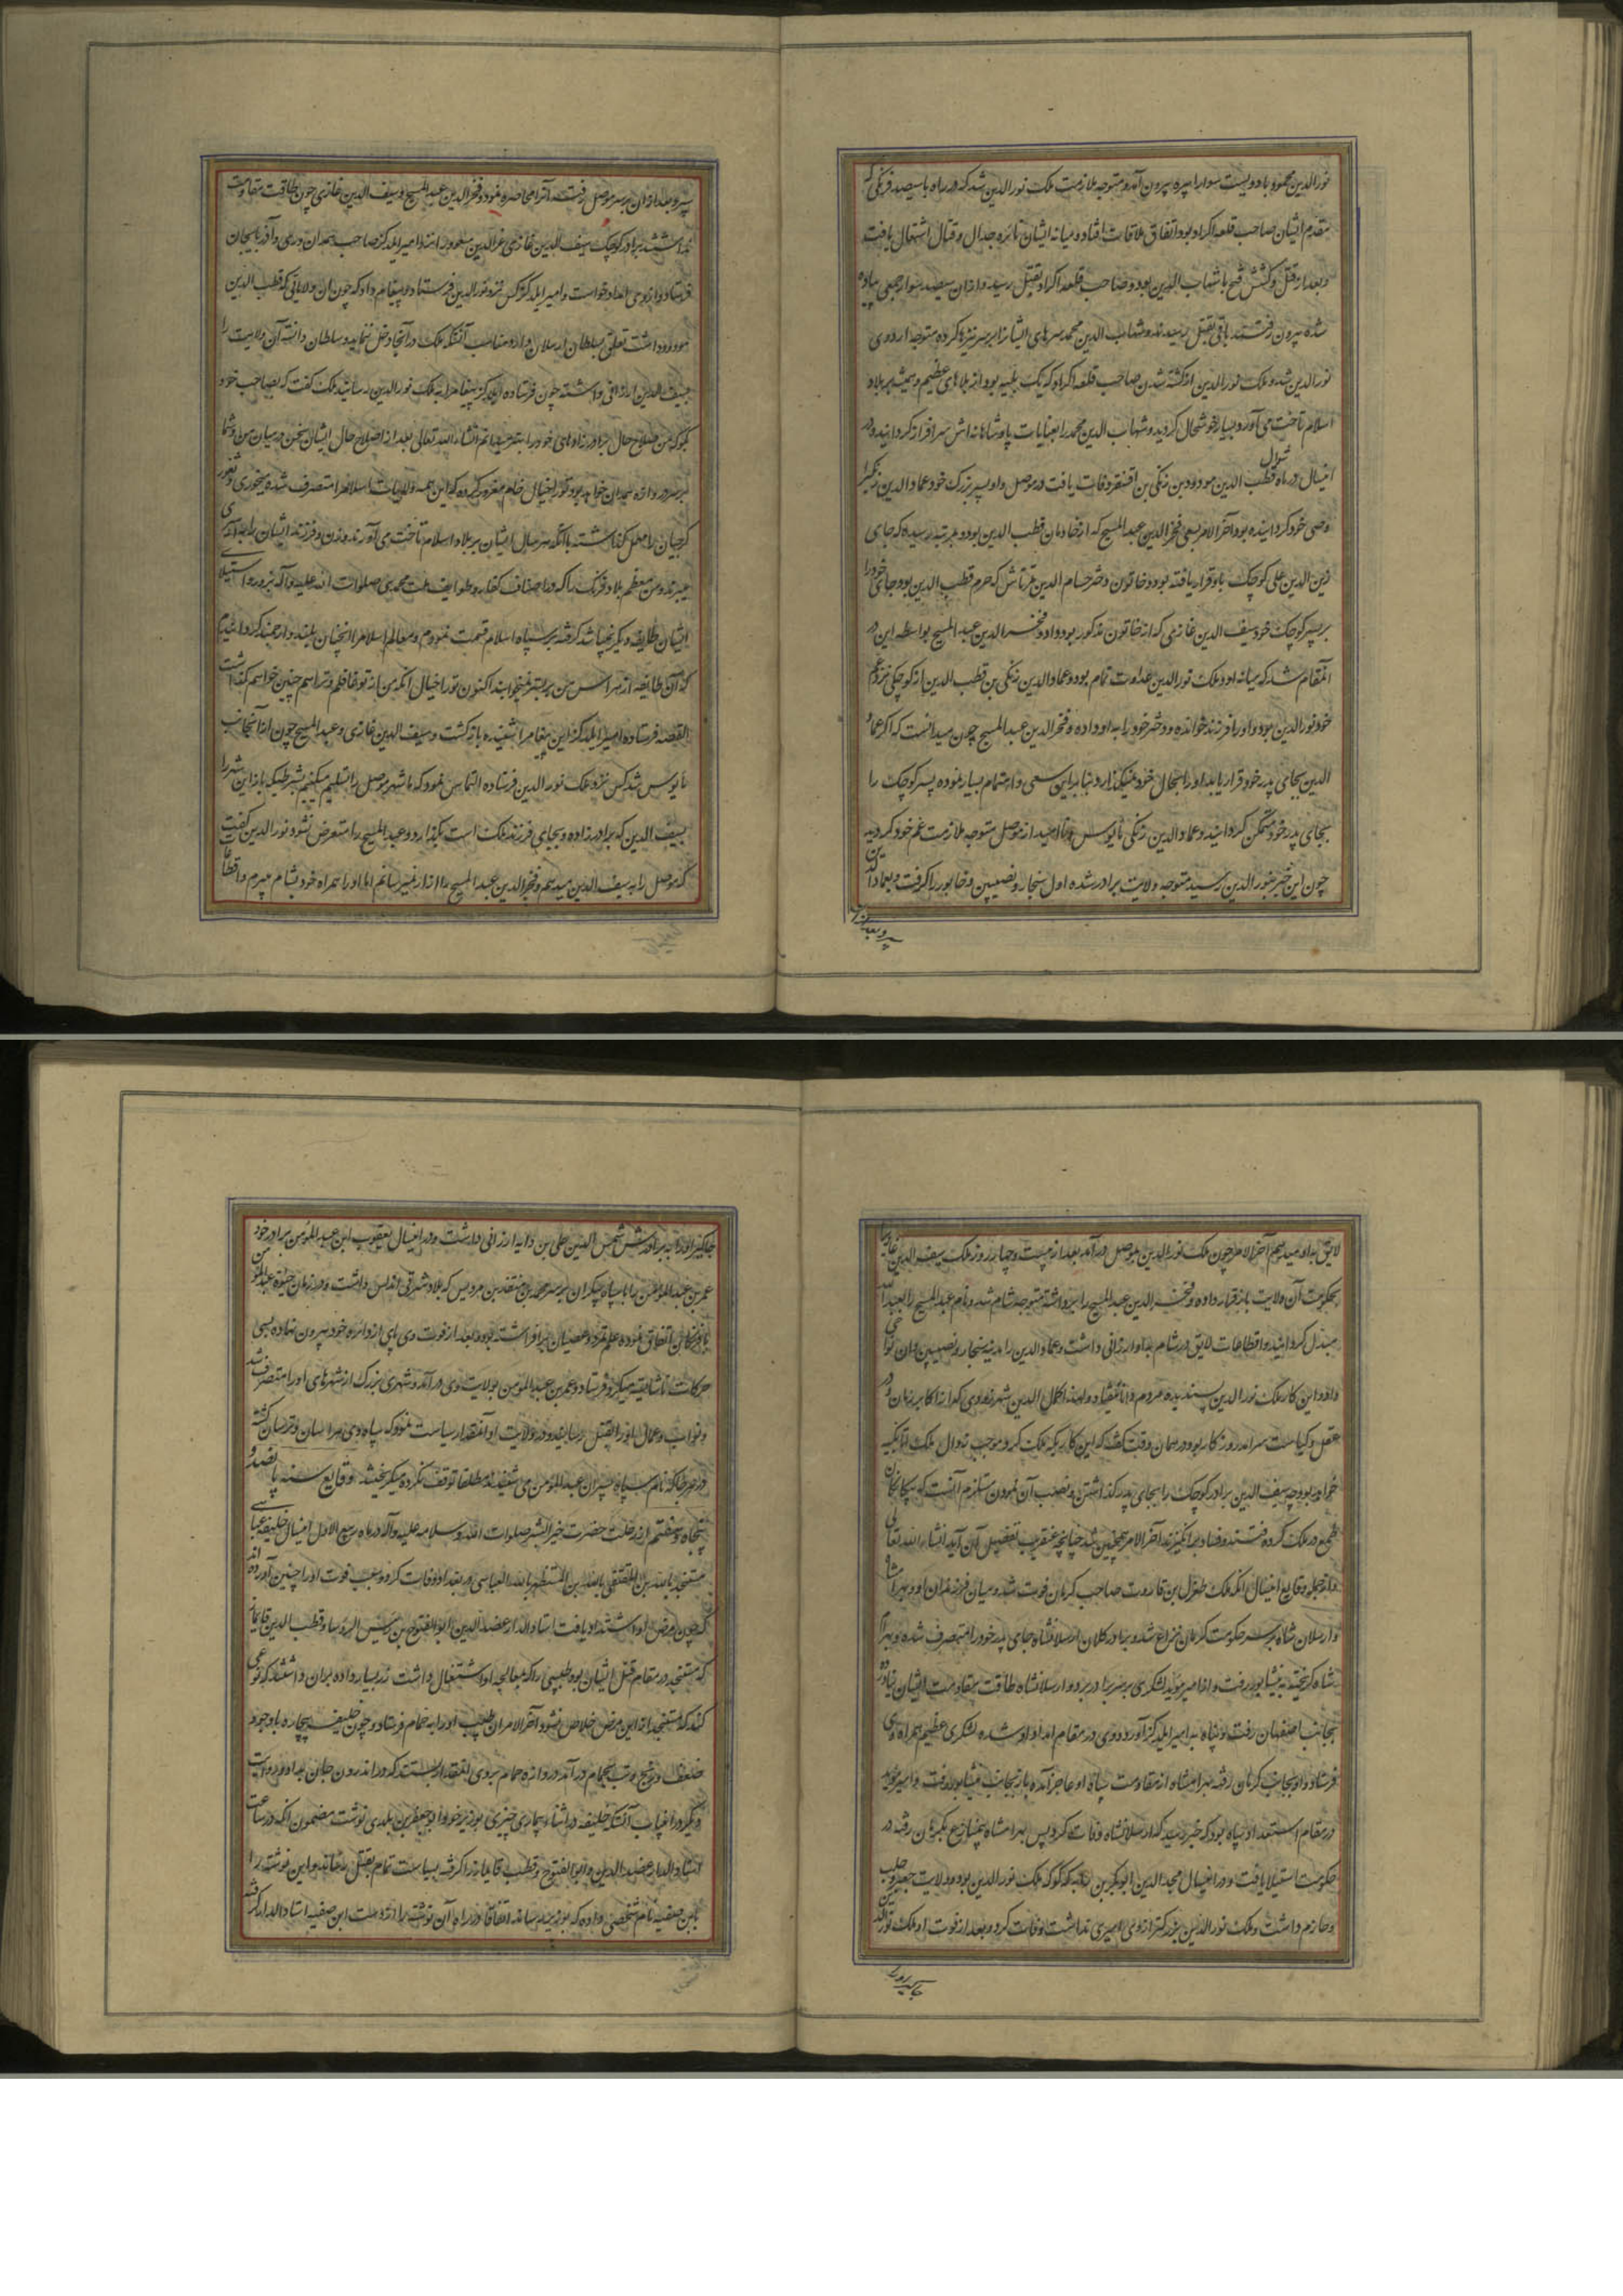 نورالدین محمود با دویست سوار از بیره بیرون آمده متوجه ملازمت ملک نورالدین شد که در راه با سیصد فرنگی که
مقدم ایشان صاحب قلعه اکراد بود اتفاق ملاقات افتاد و میانه ایشان نایره جدال و قتال اشتعال یافت
و بعد از قتل و کشش فتح با شهاب الدین بود و صاحب قلعه اکراد بقتل رسید و از ان سیصد سوار جمعی پیاده
شده بیرون رفتند باقی بقتل رسیدند و شهاب الدین محمد سرهای ایشان را بر سر نیزها کرده متوجه اردوی
نورالدین شد و ملک نورالدین از کشته شدن صاحب قلعه اکراد که یک بلیه بود از بلاهای عظیم و همیشه بر بلاد
اسلام تاخت می آورد بسیار خوشحال کردید و شهاب الدین محمد را بعنایات پادشاهانه اش سرافراز کردانید و در
اینسال در ماه شوال قطب الدین مودود بن زنکی بن اقسنقر وفات یافت در موصل و او پسر بزرک خود عماد الدین زنکی را
وصی خود کردانیده بود آخر الامر بسعی فخر الدین عبد المسیح که از خادمان قطب الدین بود و بمرتبه رسیده که جای
زین الدین علی کوچک باو قرار یافته بود و خاتون دختر حسام الدین تمرتاش که حرم قطب الدین بود و جای خود را
بر پسر کوچک خود سیف الدین غازی که از خاتون مذکور بود داد و فخر الدین عبد المسیح بواسطه این در
آنمقام شد که میانه او و ملک نورالدین عداوت تمام بود و عماد الدین زنکی بن قطب الدین از کوچکی نزد عم
خود نورالدین بود و او را فرزند خوانده و دختر خود را به او داده و فخر الدین عبد المسیح چون میدانست که اکر عماد
الدین بجای پدر خود قرار یابد او را بحال خود نمیکذارد بنابراین سعی و اهتمام بسیار نموده پسر کوچک را
بجای پدر خود متمکن کردانید و عماد الدین زنکی مأیوس و ناامید از موصل متوجه ملازمت عم خود کردید
چون این خبر بنور الدین رسید متوجه ولایت برادر شده اول سنجار و نصیبین و خابور را کرفت و بعماد الدین
سپرد و بعد از ان
سپرد و بعد از ان بر سر موصل رفت و آنرا محاصره نمود و فخر الدین عبد المسیح و سیف الدین غازی چون طاقت مقاومت
نداشتند برادر کوچک سیف الدین غازی عز الدین مسعود را نزد امیر ایلدکز صاحب همدان و ری و آذربایجان
فرستاد و از وی امداد خواست و امیر ایلدکز کس نزد نورالدین فرستاد و پیغام داد که چون ان ولایاتی که قطب الدین
مودود داشت تعلق بسلطان ارسلان دارد مناسب آنکه ملک در آنجا دخل ننماید و سلطان دانسته آن ولایت را
بسیف الدین ارزانی داشته چون فرستاده ایلدکز پیغام را به ملک نورالدین رسانید ملک کفت که بصاحب خود
بکو که من صلاح حال برادرزادهای خود را بهتر میدانم انشاء الله تعالی بعد از اصلاح حال ایشان سخن در میان من و شما
بر سر دروازه همدان خواهد بود تو را خیال خام مغرور کرده که این همه ولایات اسلام را متصرف شده میخوری و ثغور
کرجیان را مهمل کذاشته با آنکه هر سال ایشان بر بلاد اسلام تاخت می آورند و زن و فرزند ایشان را به اسیری
میبرند و من معظم بلاد فرنک را که در اصناف کفار و طوایف ملت محمدی صلوات الله علیه و آله بزور و استیلای
ایشان طایفه دیکر نمیباشد کرفته بر سپاه اسلام قسمت نمودم و معالم اسلام را انچنان بلند و ارجمند کردانیدم
که ان طایفه از هراس من بر بستر نمیخوابند اکنون تو را خیال انکه من از تو غافلم و تو را هم چنین خواهم کذاشت
القصه فرستاده امیر ایلدکز این پیغام را شنیده بازکشت و سیف الدین غازی و عبد المسیح چون از آنجانب
مأیوس شد کس نزد ملک نورالدین فرستاده التماس نمود که ما شهر موصل را تسلیم میکنیم بشرطیکه باز این شهر را
بسیف الدین که برادرزاده و بجای فرزند ملک است بکذارد و عبد المسیح را متعرض نشود نورالدین کفت
که موصل را به سیف الدین میدهم و فخر الدین عبد المسیح را ازار نمیرسانم اما او را همراه خود بشام میبرم و اقطاعات
لایق به او میدهم آخر الامر چون ملک نورالدین بموصل درآمد بعد از بیست و چهار روز ملک سیف الدین غازی را
بحکومت آن ولایت باز قرار داده و فخر الدین عبد المسیح را برداشته متوجه شام شد و نام عبد المسیح را بعبد الله
مبدل کردانید و اقطاعات لایق در شام به او ارزانی داشت و عماد الدین را مدینه سنجار و نصیبین و ان نواحی
داد و این کار ملک نورالدین پسندیده مردم دانا نیفتاد و لهذا کمال الدین شهرزوری که از اکابر زمان و در
عقل و کیاست سرامد روزکار بود در همان وقت کفت که این کاریکه ملک کرد موجب زوال ملک اتابکیه
خواهد بود چه سیف الدین برادر کوچک را بجای پدر کذاشتن و نصب آن نمودن مستلزم آنست که بیکانکان
طمع در ملک کرده فتنه و فساد برانکیزند آخر الامر همچنین شد چنانچه عنقریب تفصیل آن آید انشاء الله تعالی
و از جمله وقایع اینسال انکه ملک طغرل بن قاورت صاحب کرمان فوت شد و میان فرزندان او و بهرامشاه
و ارسلان شاه بر سر حکومت کرمان نزاع شد و برادر کلان ارسلانشاه جای پدر خود را متصرف شده و بهرام
شاه کریخته به نیشابور رفت و از امیر مؤید لشکری بر سر برادر برد و ارسلانشاه طاقت مقاومت ایشان نیاورده
بجانب اصفهان رفت و پناه به امیر ایلدکز آورد و وی در مقام امداد او شده لشکری عظیم همراه وی
فرستاد و او بجانب کرمان رفته بهرامشاه از مقاومت سپاه او عاجز آمده باز بجانب نیشابور رفت و امیر مؤید
در مقام استعداد سپاه بود که خبر رسید که ارسلانشاه وفات کرد پس بهرامشاه بیمنازع بکرمان رفته در
حکومت استیلا یافت و در اینسال مجد الدین ابوبکر بن دایه که کوکه ملک نورالدین بود و ولایت جعبر و حلب
و حازم داشت و ملک نورالدین بزرکتر از وی امیری نداشت وفات کرد و بعد از فوت او ملک نورالدین
جاکیر او را
جاکیر او را به برادرش شمس الدین علی بن دایه ارزانی داشت و در اینسال یعقوب ابن عبد المؤمن برادر خود
عمر بن عبد المؤمن را با سپاه بیکران بر سر محمد بن منقذ بن مردیس که بلاد شرقی اندلس داشت و در زمان حیوة عبد المؤمن
با فرنکان اتفاق نموده علم تمرد و عصیان برافراشته بود و بعد از فوت وی پای از دایره خود بیرون نهاده بسی
حرکات ناشایسته میکرد فرستاد و عمر بن عبد المؤمن بولایت وی درآمد و شهری بزرک از شهرهای او را متصرف شد
و نواب و عمال او را بقتل رسانید و در ولایت او آنمقدار سیاست نمود که سپاه وی هراسان و ترسان کشته
در هر جا که نام سپاه پسران عبد المؤمن می شنیدند مطلقا توقف نکرده میکریختند وقایع سنه پانصد و
پنجاه و هفتم از رحلت حضرت خیر البشر صلوات الله و سلامه علیه و آله در ماه ربیع الاول اینسال خلیفه عباسی
مستنجد بالله بن المقتفی بالله بن المستظهر بالله العباسی در بغداد وفات کرد و سبب فوت او را چنین آورده اند
که چون مرض او اشتداد یافت استاد الدار عضد الدین ابوالفتوح بن رئیس الرؤسا و قطب الدین قایماز
که مستنجد در مقام قتل ایشان بود طبیبی را که بمعالجه او اشتغال داشت زر بسیار داده بران داشتند که نوعی
کند که مستنجد از این مرض خلاص نشود آخر الامر ان طبیب او را به حمام فرستاد و چون خلیفه بیچاره با وجود
ضعف و رنج و تب بحمام درآمد دروازه حمام بر وی انمقدار بستند که در اندرون جان بداد و در روایت
دیکر در اینباب آنستکه خلیفه در اثناء بیماری چیزی بوزیر خود ابو جعفر بن بلدی نوشت مضمون انکه در ساعت
استاد الدار عضد الدین و ابوالفتوح و قطب قایماز را کرفته بسیاست تمام بقتل رساند و این نوشته را
بابن صفیه نام شخصی داده که بوزیر رساند اتفاقا در راه آن نوشته را از دست ابن صفیه استاد الدار کرفته